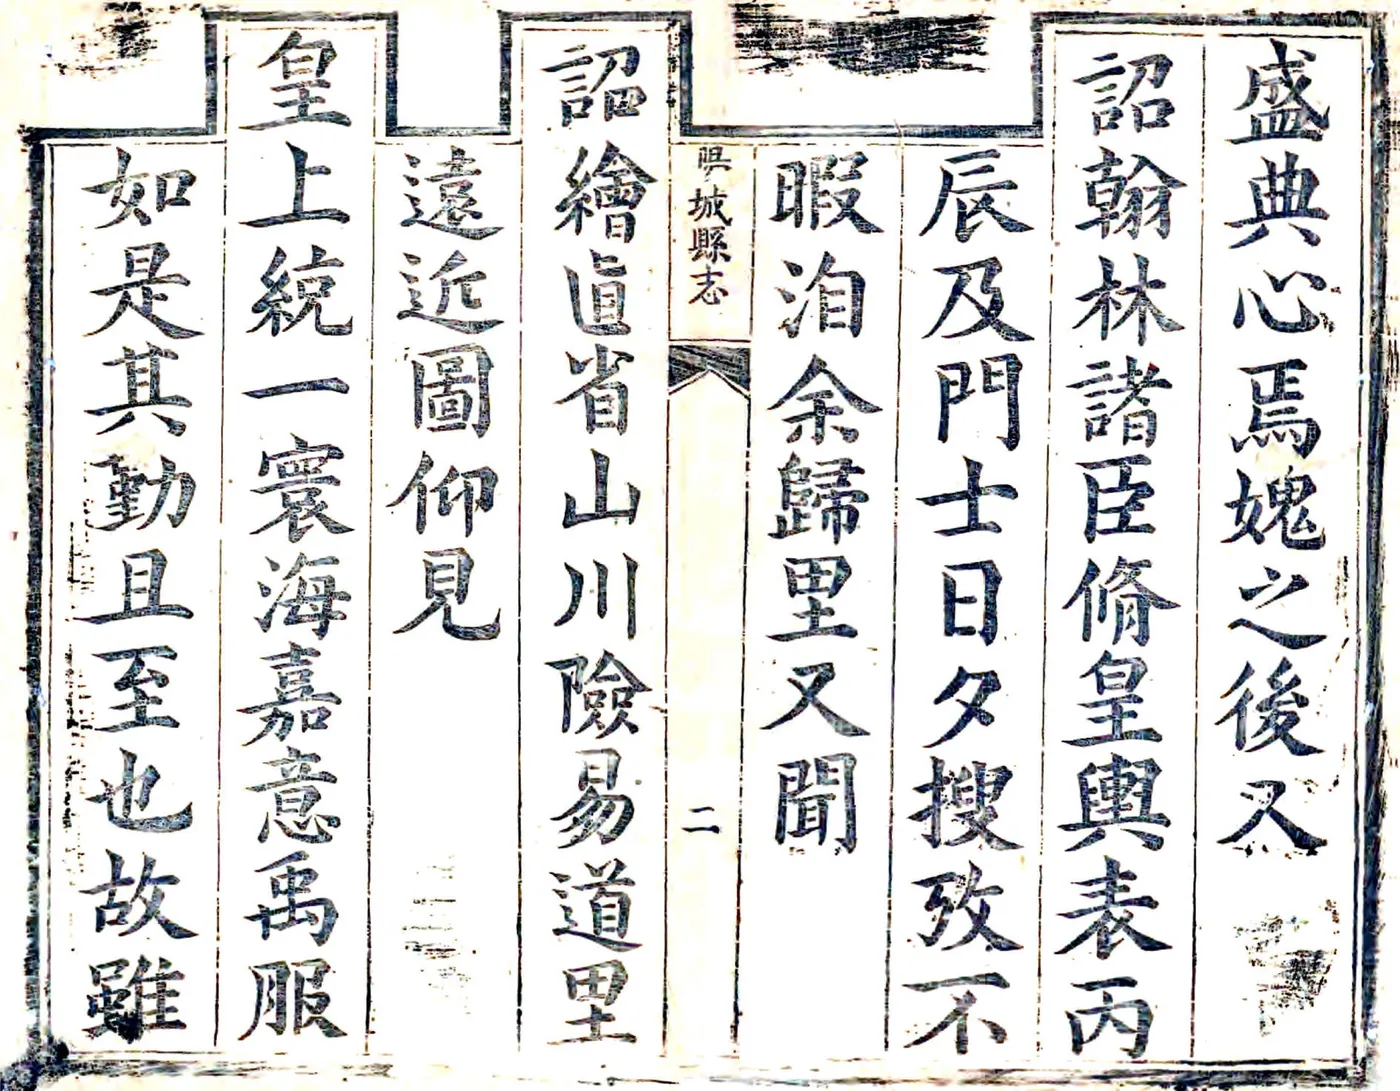 盛典心焉媿之後又
詔翰林諸臣脩皇輿表丙
辰及門士日夕搜攷不
暇洎余歸里又聞
城縣志
二
詔繪直省山川險易道里
遠近圖仰見
皇上統一寰海嘉意禹服
如是其勤且至也故雖